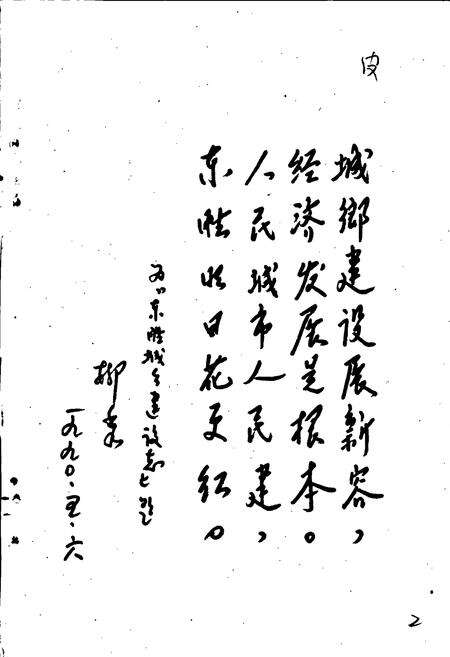 皮
城鄉建设展新容，
经济发展是根本。
人民城市人民建，
东胜 日花更红。
为《东胜城乡建设志》题
一九九〇·五·六
2